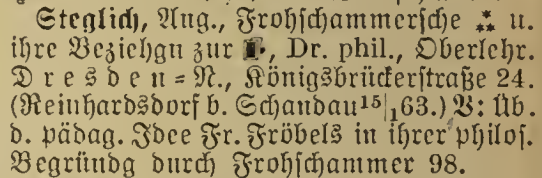 Steglich, Aug., Frohschammersche ⁂ u.
ihre Beziehgn zur, Dr. phil., Oberlehr.
Dresden=N., Königsbrückerstraße 24.
(Reinhardsdorf b. Schandau 15|1 63.) V: Üb.
d. pädag. Idee Fr. Fröbels in ihrer philos.
Begründg durch Frohschammer 98.